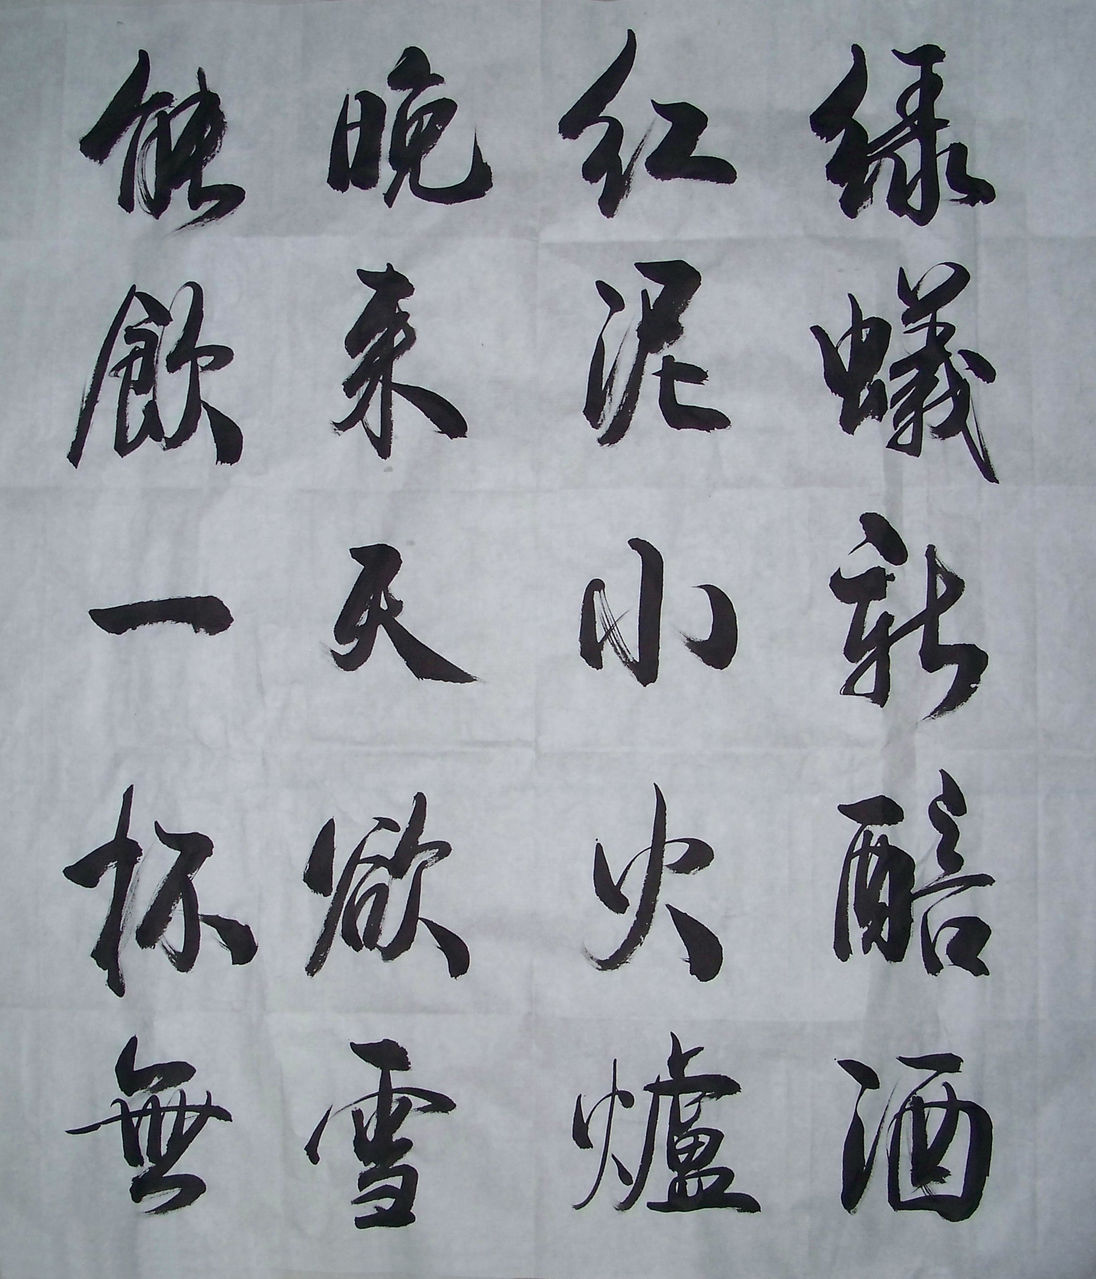 緑蟻新醅酒
紅泥小火爐
晚来天欲雪
能飲一杯無